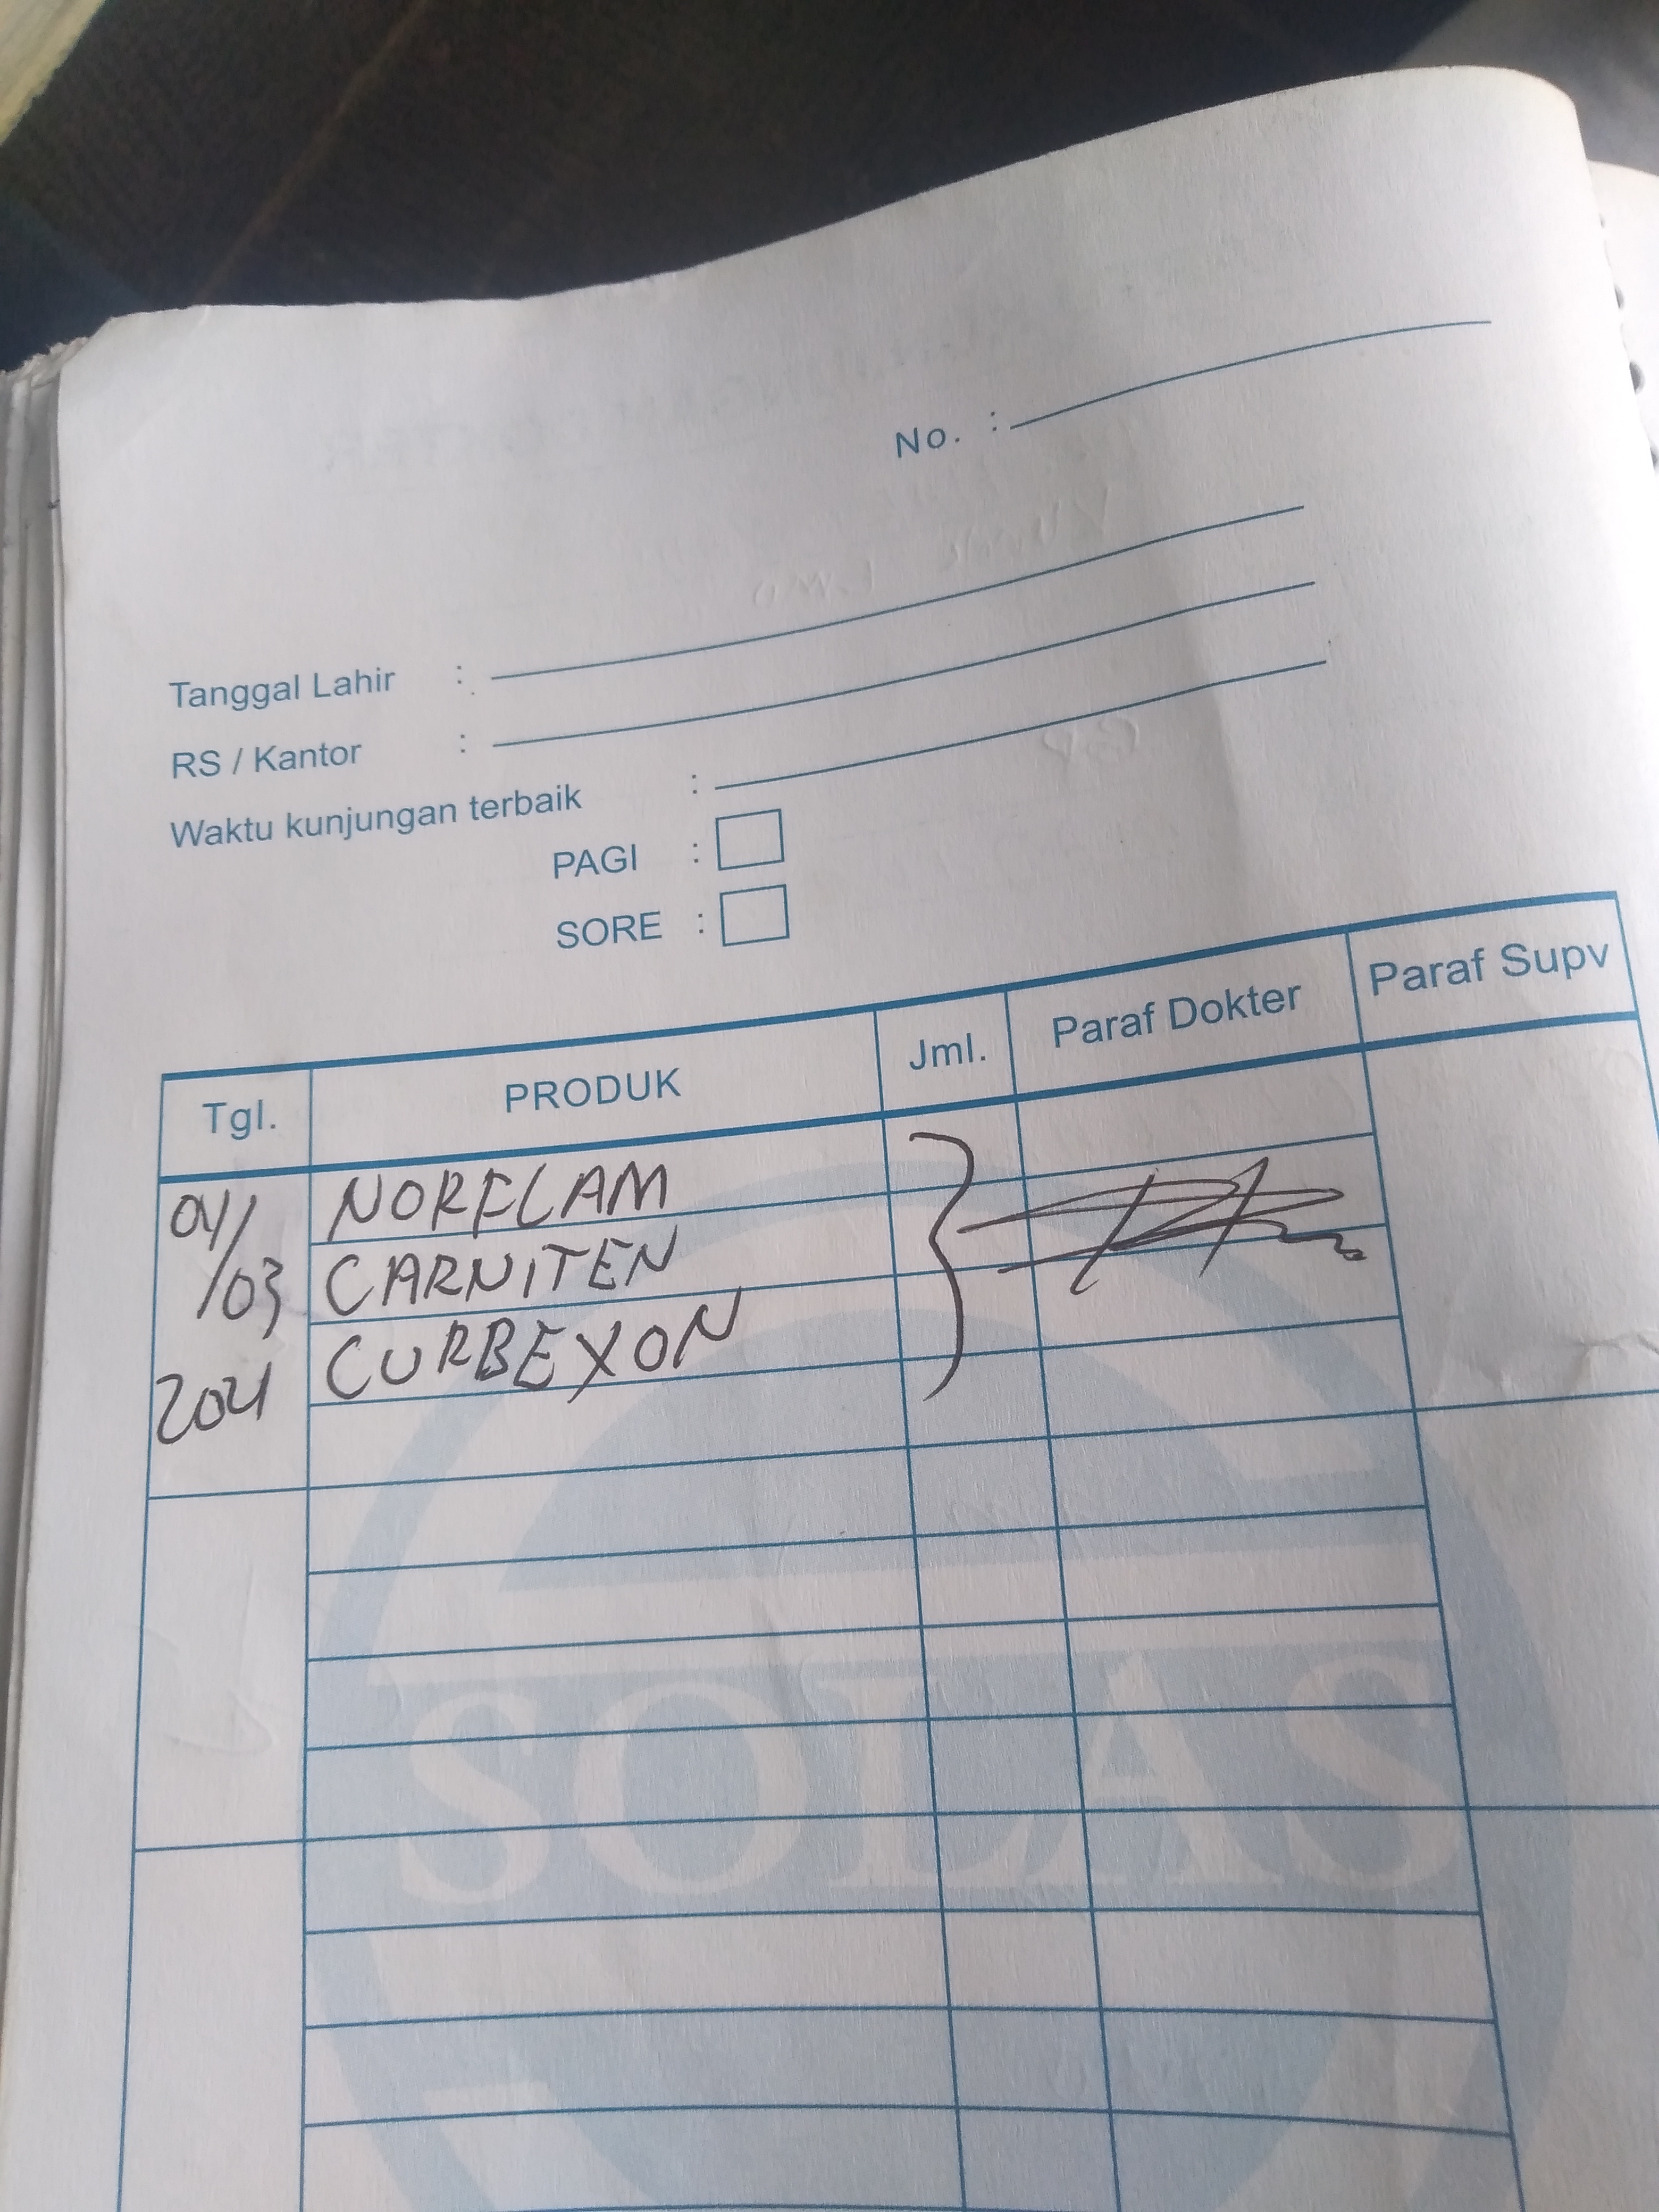 No. :
Tanggal Lahir :
RS / Kantor :
Waktu kunjungan terbaik :
PAGI :
SORE :
Tgl. PRODUK Jml. Paraf Dokter Paraf Supv
04/ NORFLAM
/03 CARNITEN
2021 CURBEXON
SOLAS